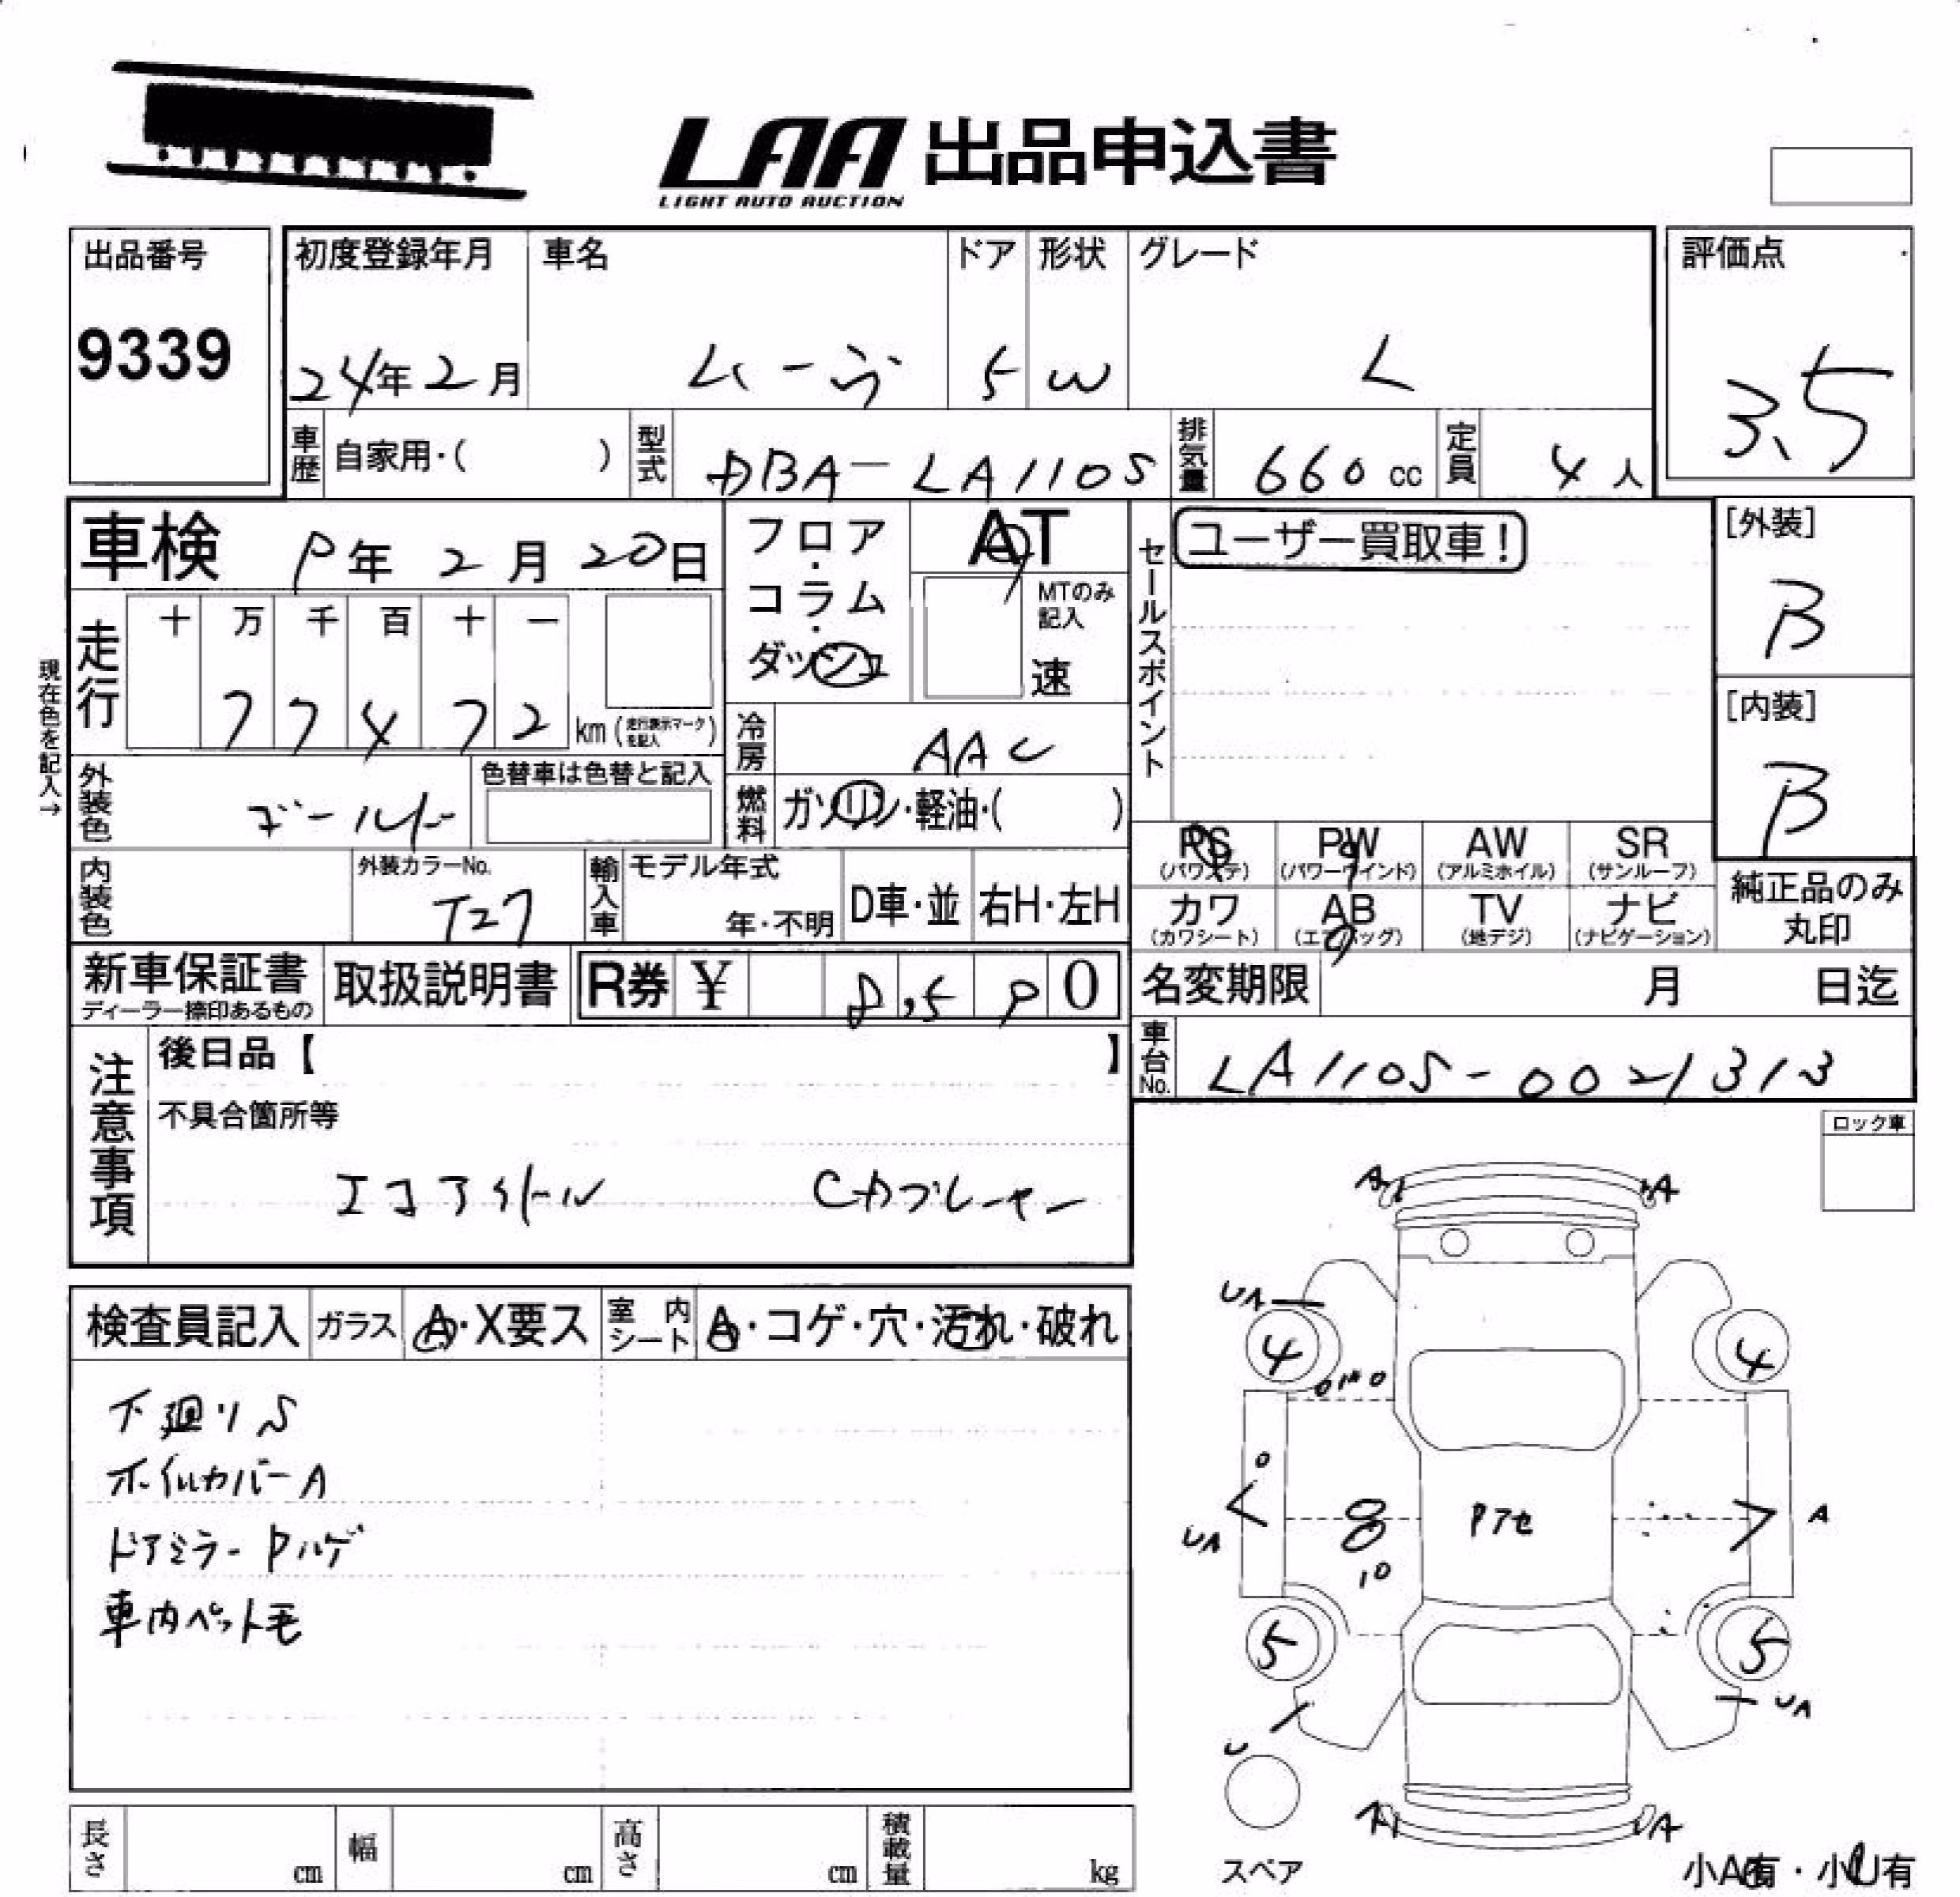 LAA 出品申込書
LIGHT AUTO AUCTION
出品番号
9339
初度登録年月
24年 2月
車名
ムーヴ
ドア
5
形状
W
グレード
L
評価点
3.5
車歴 自家用・( )
型式 DBA-LA110S
排気量 660 cc
定員 4 人
車検 年 2月 20日
フロア・コラム・ダッシュ
AT
MTのみ記入
速
セールスポイント
ユーザー買取車!
[外装]
B
現在色を記入→
走行 十 万 千 百 十 一
7 7 4 7 2 km (走行表示マークを記入)
[内装]
B
冷房 AAC
外装色 ゴールド
色替車は色替と記入
燃料 ガソリン・軽油・( )
PS (パワステ)
PW (パワーウインド)
AW (アルミホイル)
SR (サンルーフ)
内装色
外装カラーNo.
T27
輸入車 モデル年式
年・不明
D車・並
右H・左H
カワ (カワシート)
AB (エアバッグ)
TV (地デジ)
ナビ (ナビゲーション)
純正品のみ丸印
新車保証書
ディーラー捺印あるもの
取扱説明書
R券 ¥ 8,590
名変期限 月 日迄
車台No. LA110S-0021313
注意事項
後日品【 】
不具合箇所等
エコアイドル CDプレーヤー
ロック車
検査員記入 ガラス A・X要ス
室内シート A・コゲ・穴・汚れ・破れ
下廻りS
ホイルカバーA
ドアミラーPハゲ
車内ペット毛
A A
UA
4 4
UA Pアセ A
5 5
UA
U
A UA
スペア
小A有・小U有
長さ cm
幅 cm
高さ cm
積載量 kg